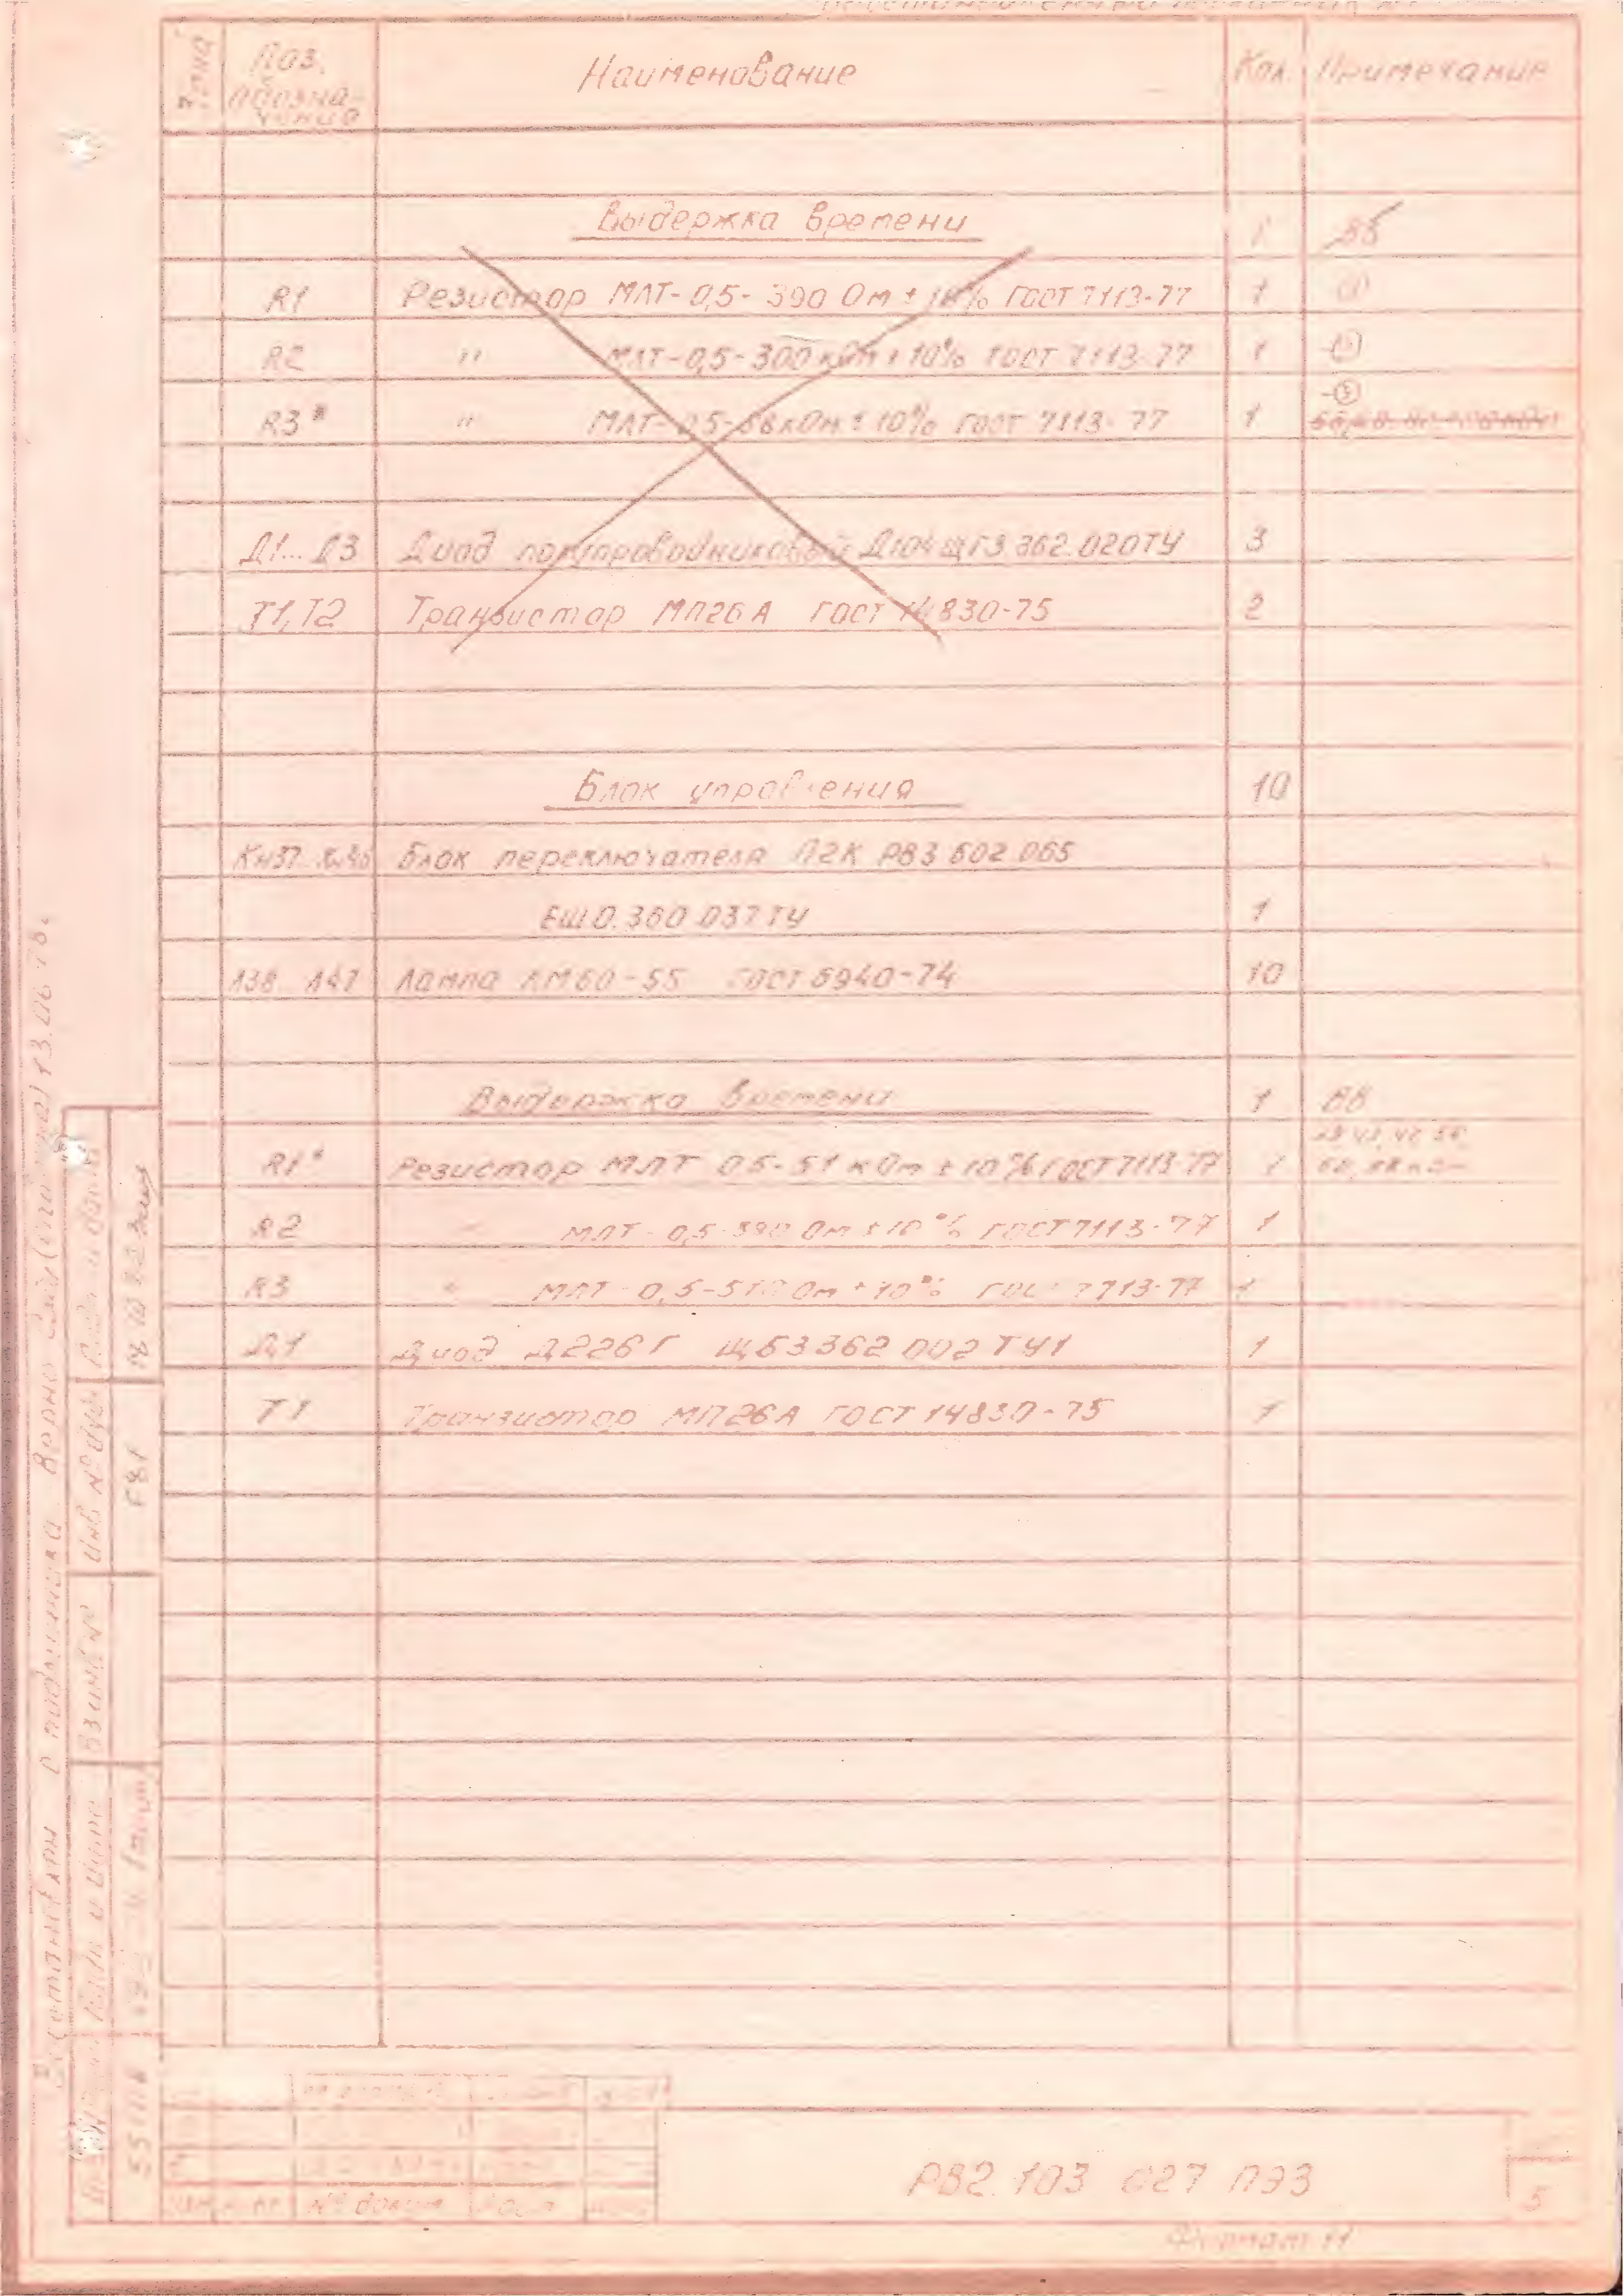 Зона
Поз. обозна-чение
Наименование
Кол.
Примечание
Выдержка времени 1
R1 Резистор МЛТ-0,5-390 Ом ± 10% ГОСТ 7113-77 1
R2 " МЛТ-0,5-300 кОм ± 10% ГОСТ 7113-77 1
R3* " МЛТ-0,5-68 кОм ± 10% ГОСТ 7113-77 1
Д1... Д3 Диод полупроводниковый Д104 ЩГ3.362.020ТУ 3
Т1,Т2 Транзистор МП26А ГОСТ 14830-75 2
Блок управления 10
Кн37 Блок переключателя П2К РВ3 602 065
ЕЩ0.360 037ТУ 1
Л38 Л47 Лампа КМ60-55 ГОСТ 6940-74 10
Выдержка времени 1 ВВ
R1* Резистор МЛТ 0,5-51 кОм ± 10% ГОСТ 7113-77 1
R2 " МЛТ-0,5-390 Ом ±10% ГОСТ 7113-77 1
R3 " МЛТ-0,5-510 Ом ±10% ГОСТ 7713-77 1
Д1 Диод Д226Г ЩБ3362 002 ТУ1 1
Т1 Транзистор МП26А ГОСТ 14830-75 1
с подлинника Верно
13.06.78.
Подп. и дата
Инв № дубл
Взаинв №
Подп и дата
№ докум
РВ2.103 027 ПЭ3
5
Формат 11